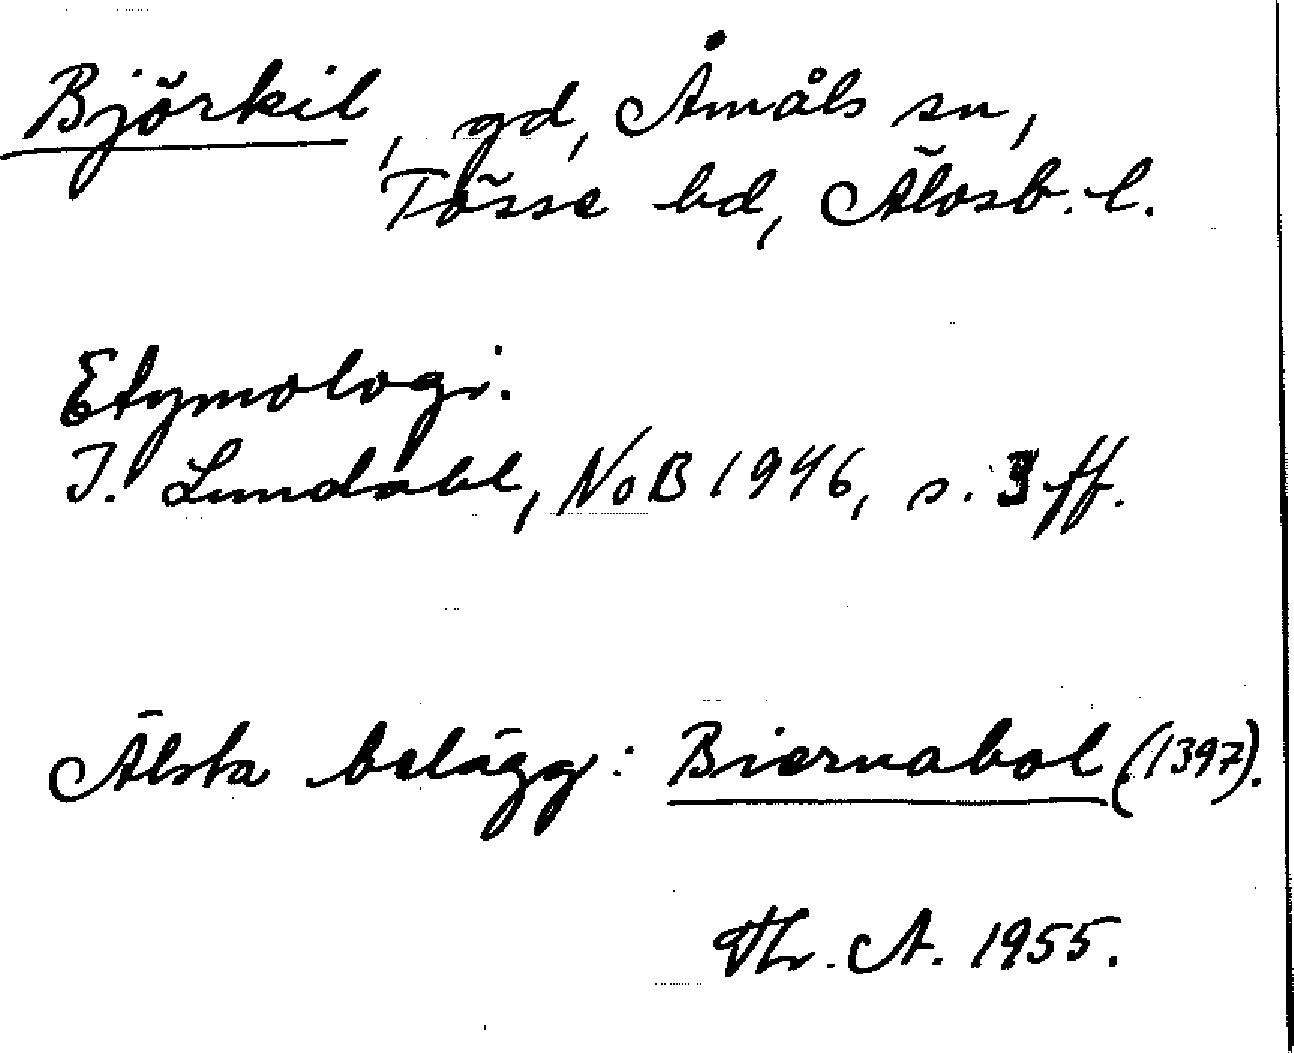 Björkil, gd, Åmåls sn,
Tösse hd, Älvsb. l.
Etymologi.
I. Lundahl, NoB 1946, s. 3 ff.
Älsta belägg: Biernabol (1397).
Thr. A. 1955.